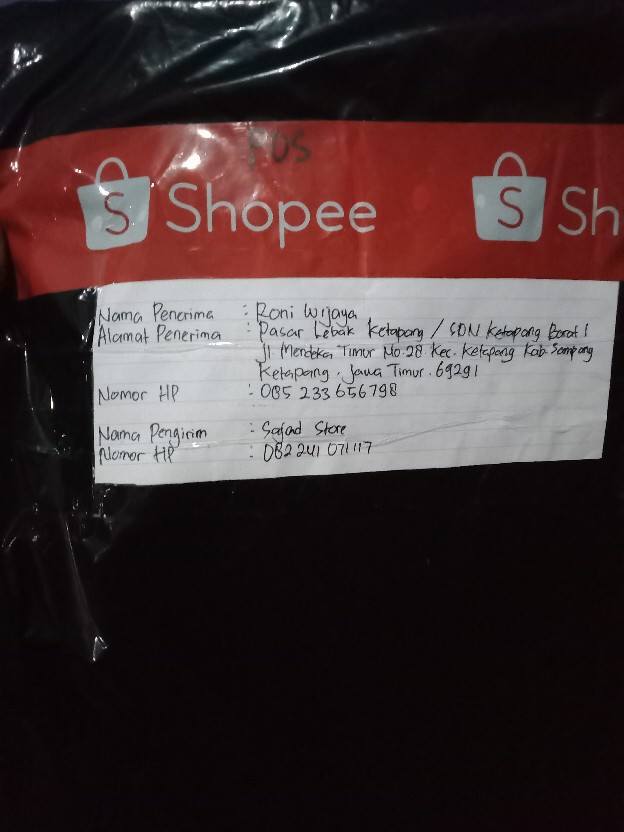 POS
Shopee Sh
Nama Penerima : Roni Wijaya
Alamat Penerima : Pasar Lebak Ketapang / SDN Ketapang Barat 1
Jl Merdeka Timur No.28 Kec. Ketapang Kab. Sampang
Ketapang. Jawa Timur. 69291
Nomor HP : 085 233 656798
Nama Pengirim : Sajad Store
Nomor HP : 082 241 071117